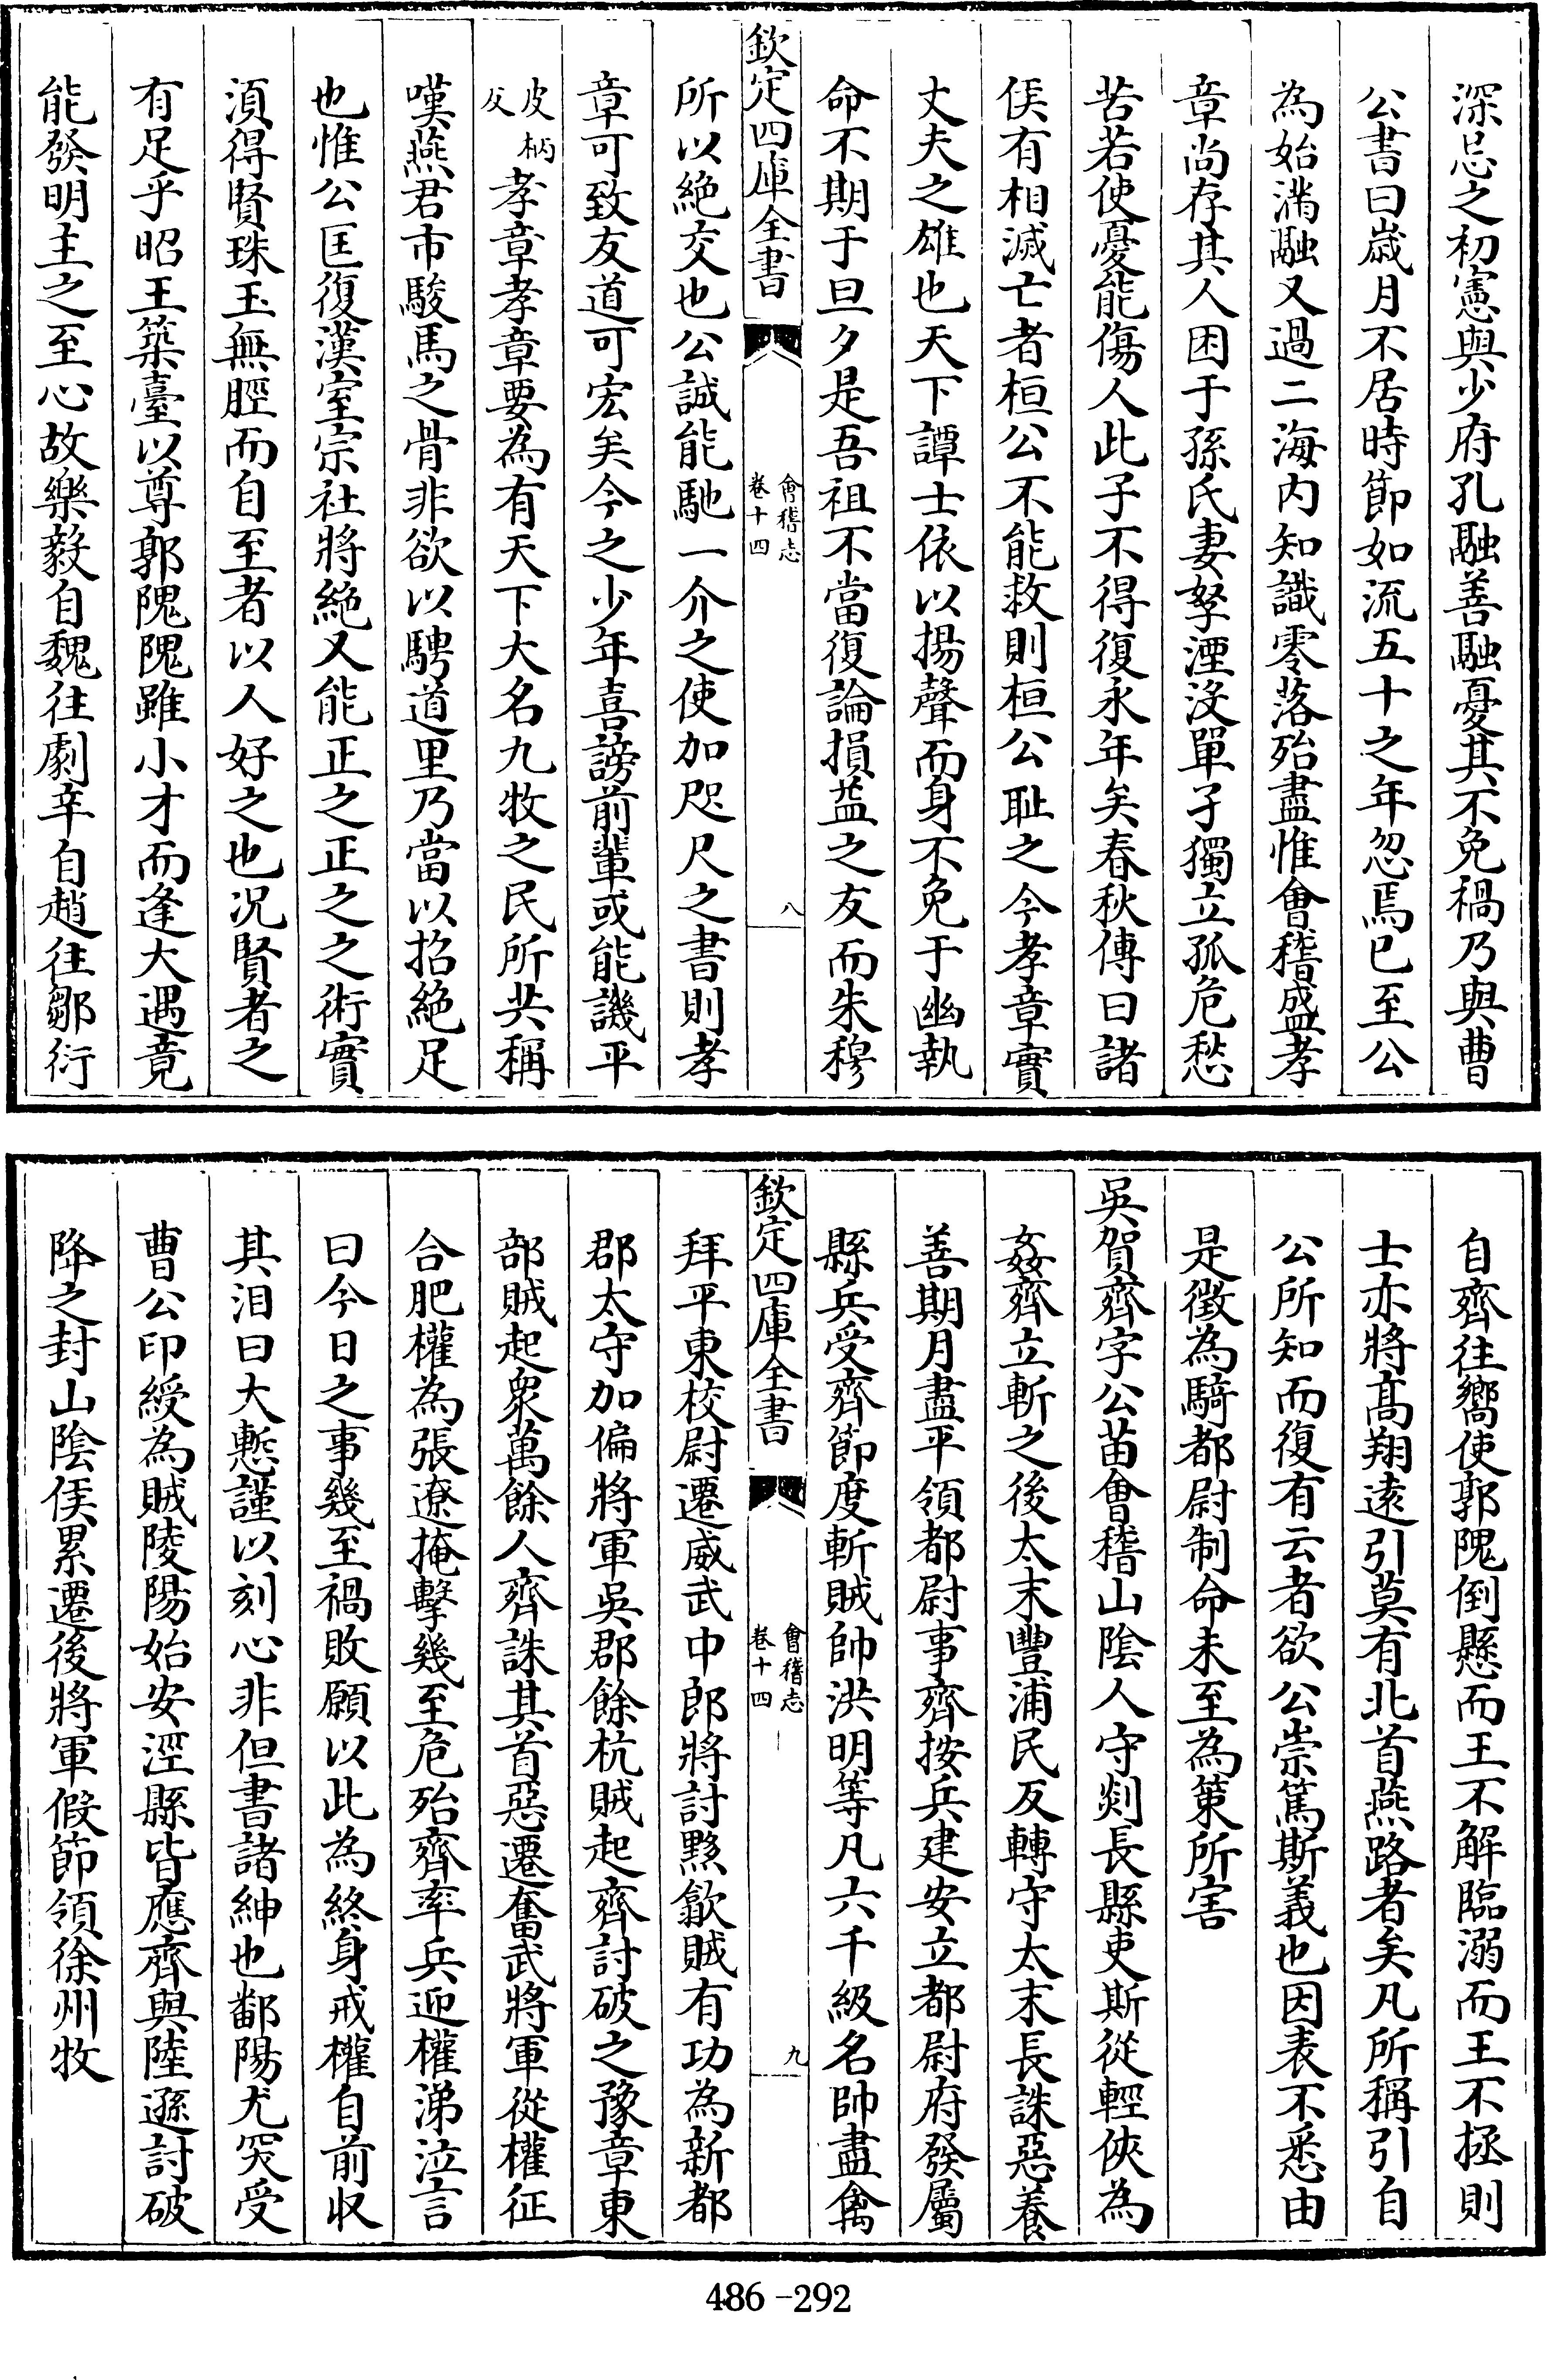 深忌之初憲與少府孔融善融憂其不免禍乃與曹
公書曰歳月不居時節如流五十之年忽焉已至公
為始滿融又過二海内知識零落殆盡惟會稽盛孝
章尚存其人困于孫氏妻孥湮沒單孑獨立孤危愁
苦若使憂能傷人此子不得復永年矣春秋傳曰諸
侯有相滅亡者桓公不能救則桓公耻之今孝章實
丈夫之雄也天下譚士依以揚聲而身不免于幽執
命不期于旦夕是吾祖不當復論損益之友而朱穆
欽定四庫全書
會稽志
卷十四
八
所以絶交也公誠能馳一介之使加咫尺之書則孝
章可致友道可宏矣今之少年喜謗前輩或能譏平
皮柄
反
孝章孝章要為有天下大名九牧之民所共稱
嘆燕君市駿馬之骨非欲以騁道里乃當以招絶足
也惟公匡復漢室宗社將絶又能正之正之之術實
湏得賢珠玉無脛而自至者以人好之也况賢者之
有足乎昭王築臺以尊郭隗隗雖小才而逢大遇竟
能發明主之至心故樂毅自魏往劇辛自趙往鄒衍
自齊往嚮使郭隗倒懸而王不解臨溺而王不拯則
士亦將髙翔逺引莫有北首燕路者矣凡所稱引自
公所知而復有云者欲公崇篤斯義也因表不悉由
是徴為騎都尉制命未至為策所害
吳賀齊字公苗會稽山隂人守剡長縣吏斯從輕俠為
姦齊立斬之後太末豐浦民反轉守太末長誅惡養
善期月盡平領都尉事齊按兵建安立都尉府發屬
縣兵受齊節度斬賊帥洪明等凡六千級名帥盡禽
欽定四庫全書
會稽志
卷十四
九
拜平東校尉遷威武中郎將討黟歙賊有功為新都
郡太守加偏將軍吳郡餘杭賊起齊討破之豫章東
部賊起衆萬餘人齊誅其首惡遷奮武將軍從權征
合肥權為張遼掩擊幾至危殆齊率兵迎權涕泣言
曰今日之事幾至禍敗願以此為終身戒權自前収
其泪曰大慙謹以刻心非但書諸紳也鄱陽尤突受
曹公印綬為賊陵陽始安涇縣皆應齊與陸遜討破
降之封山隂侯累遷後將軍假節領徐州牧
486-292